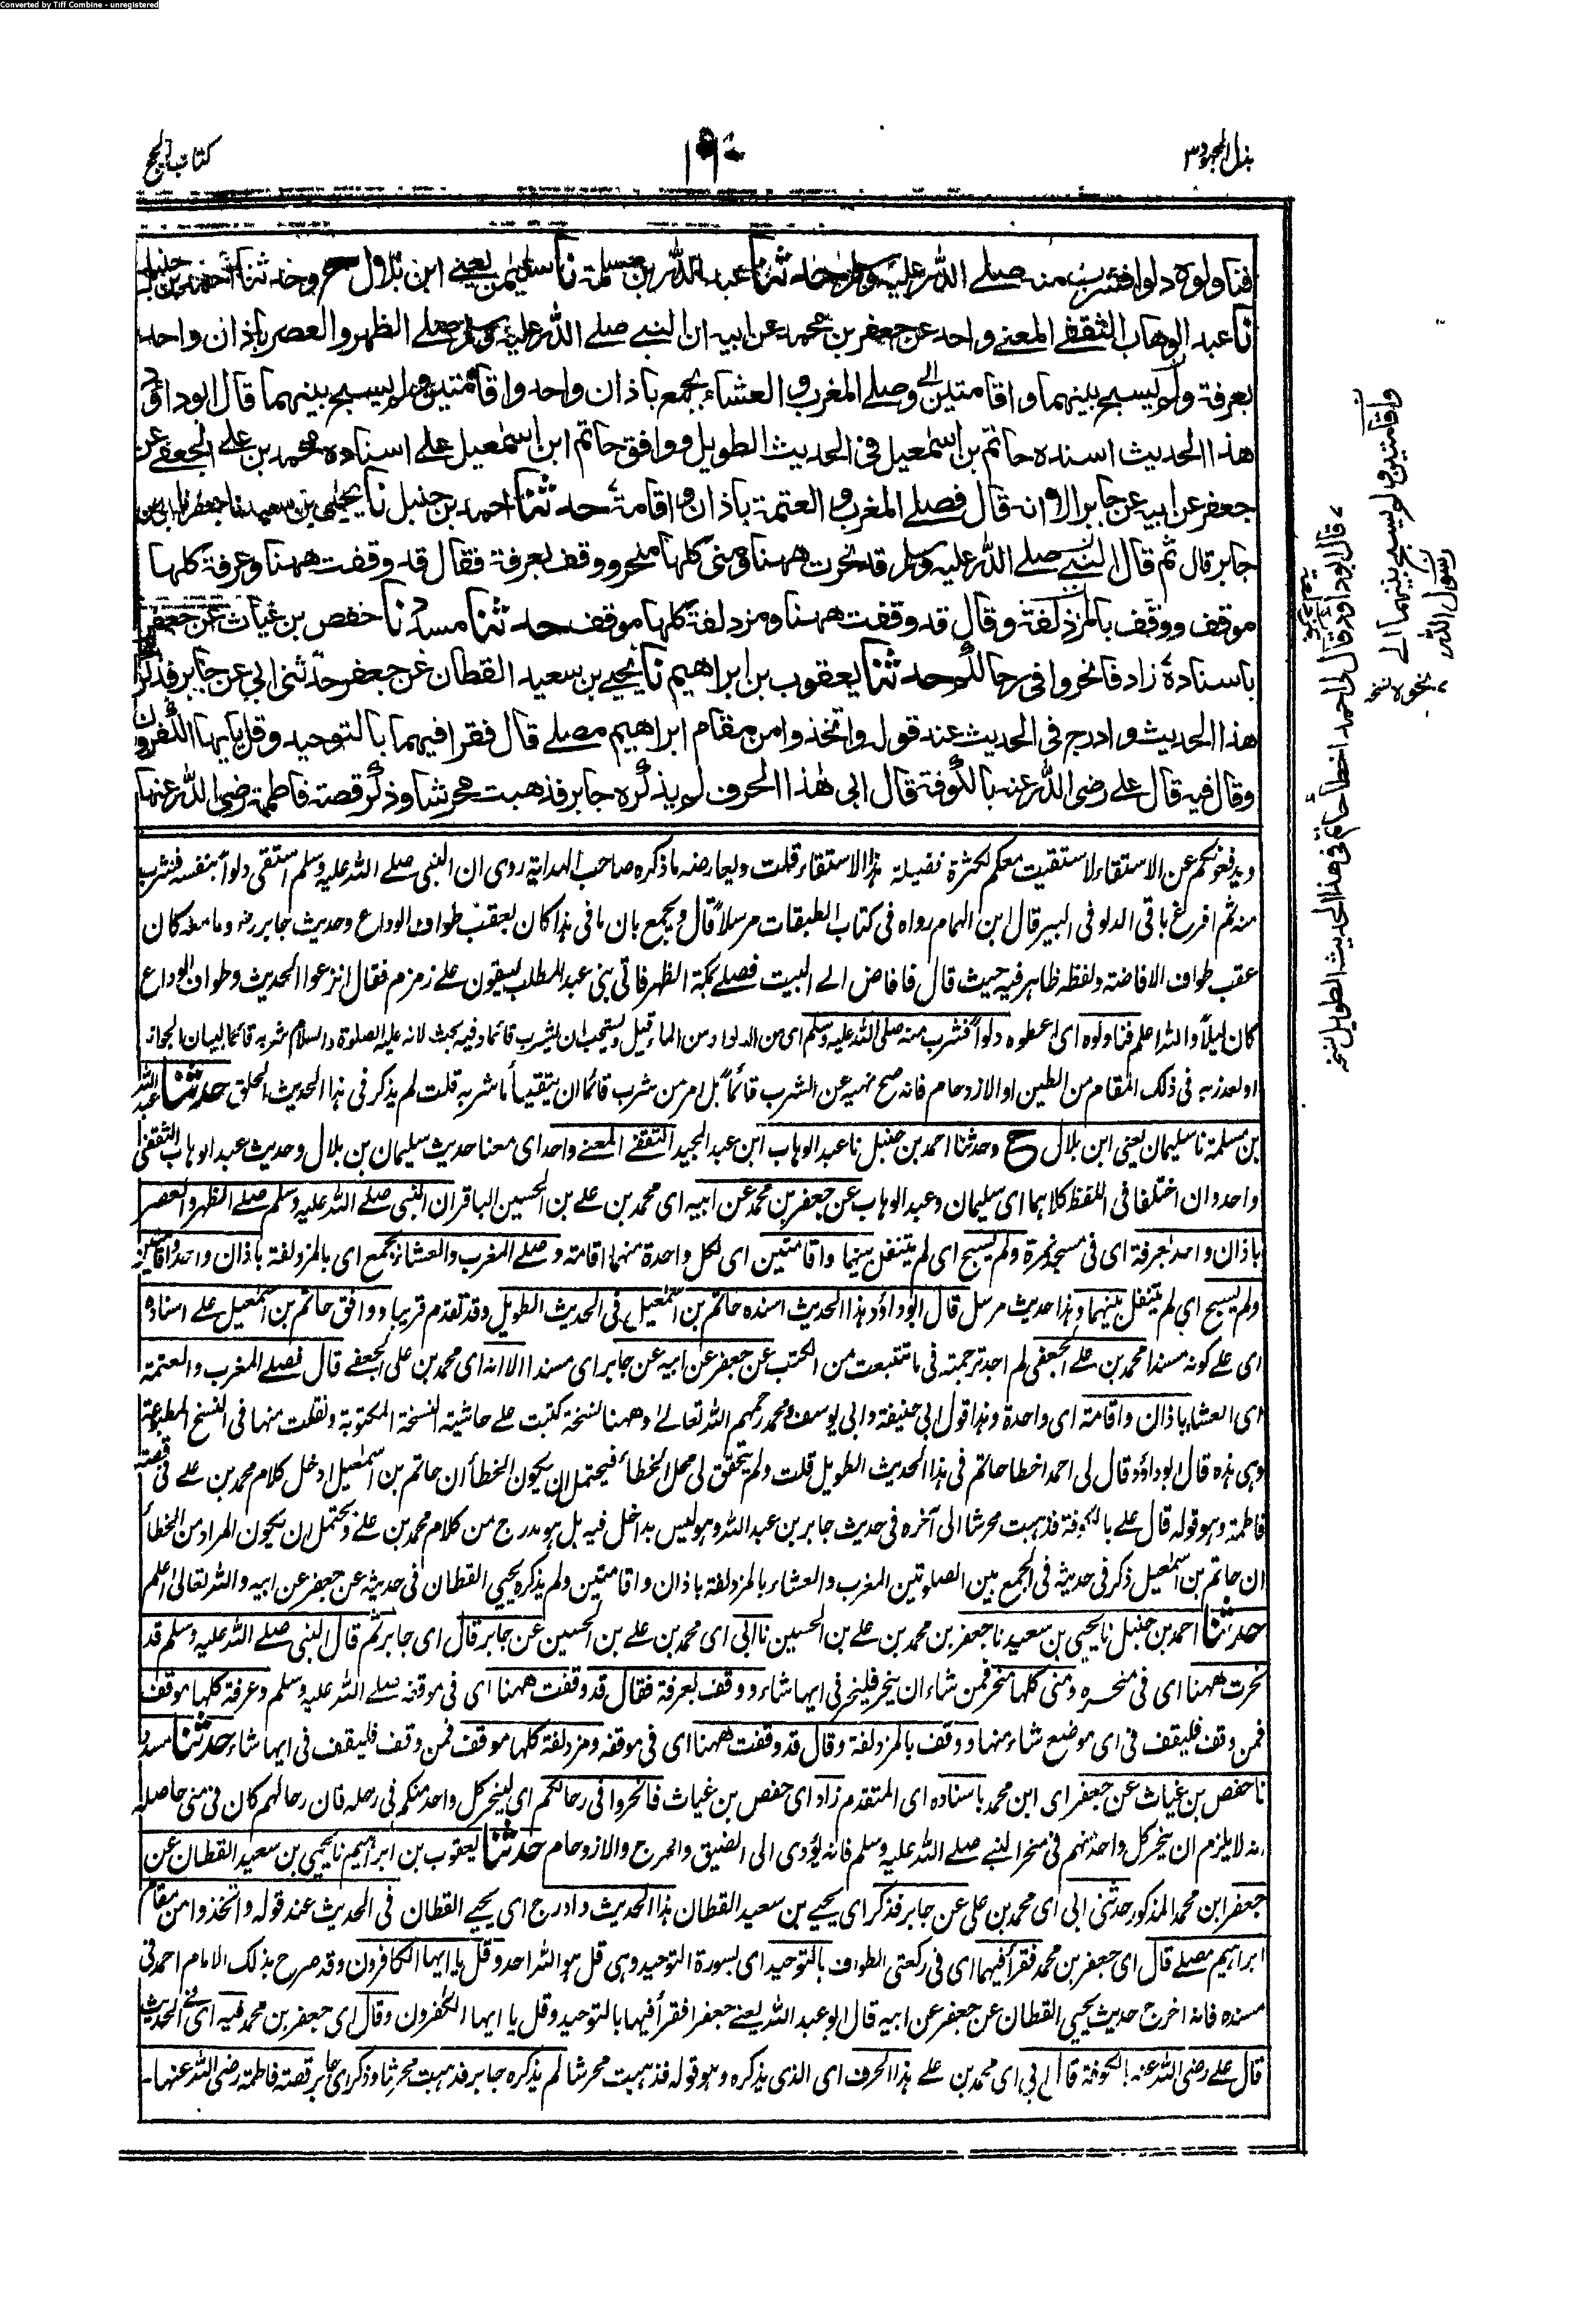 Converted by Tiff Combine - unregistered
بذل المجهود ٣
كتاب الحج
فناولوه دلوا فشرب منه صلے الله عليه وسلم حدثنا عبد الله بن مسلمة نا سليمن يعنے ابن بلال ح وحدثنا احمد بن حنبل
نا عبد الوهاب الثقفے المعنے واحد عن جعفر بن محمد عن ابيه ان النبے صلے الله عليه وسلم صلے الظهر والعصر باذان واحد
بعرفة ولم يسبح بينهما واقامتين وصلے المغرب والعشاء بجمع باذان واحد واقامتين ولم يسبح بينهما قال ابوداؤد
هذا الحديث اسنده حاتم بن اسمعيل فى الحديث الطويل ووافق حاتم ابن اسمعيل علے اسناده محمد بن علے الجعفے عن
جعفر عن ابيه عن جابر الا انه قال فصلے المغرب والعتمة باذان واقامة حدثنا احمد بن حنبل نا يحيى بن سعيد نا جعفر نا ابى عن
جابر قال ثم قال النبے صلے الله عليه وسلم قد نحرت ههنا ومنى كلها منحر ووقف بعرفة فقال قد وقفت ههنا وعرفة كلها
موقف ووقف بالمزدلفة وقال قد وقفت ههنا ومزدلفة كلها موقف حدثنا مسدد نا حفص بن غياث عن جعفر
باسناده زاد فانحروا فى رحالكم حدثنا يعقوب بن ابراهيم نا يحيے بن سعيد القطان عن جعفر حدثنى ابي عن جابر فذكر
هذا الحديث وادرج فى الحديث عند قوله واتخذوا من مقام ابراهيم مصلے قال فقرا فيهما بالتوحيد وقل يايها الكفرون
وقال فيه قال علے رضى الله عنه بالكوفة قال ابى هذا الحرف لم يذكره جابر فذهبت محرشا وذكر قصة فاطمة رضى الله عنها
ويدفعونكم عن الاستقاء لاستقيت معكم لكثرة فضيلة هذا الاستقاء قلت ويعارضه ما ذكره صاحب الهداية روى ان النبى صلے الله عليه وسلم استقى دلوا بنفسه فشرب
منه ثم افرغ باقى الدلو فى البير قال ابن الهمام رواه فى كتاب الطبقات مرسلا قال ويجمع بان ما فى هذا كان بعقب طواف الوداع وحديث جابر رضہ وما معہ كان
عقب طواف الافاضة ولفظه ظاهر فيه حيث قال فافاض الے البيت فصلے بمكة الظهر فاتى بنى عبد المطلب يسقون علے زمزم فقال انزعوا الحديث وطواف الوداع
كان ليلا والله اعلم فناولوه اى اعطوه دلوا فشرب منه صلى الله عليه وسلم اى من الدلو او من الماء قيل ويستحب ان يشرب قائما وفيه بحث لانه عليه الصلوة والسلام شربه قائما لبيان الجواز
او لعذر به فى ذلك المقام من الطين او الازدحام فانه صح نهيه عن الشرب قائما بل امر من شرب قائما ان يتقيأ ما شربه قلت لم يذكر فى هذا الحديث الحلق حدثنا عبد الله
بن مسلمة نا سليمان يعنى ابن بلال ح وحدثنا احمد بن حنبل نا عبد الوهاب ابن عبد المجيد الثقفے المعنے واحد اى معنا حديث سليمان بن بلال وحديث عبد الوهاب الثقفى
واحد وان اختلفا فى اللفظ كلاهما اى سليمان وعبد الوهاب عن جعفر بن محمد عن ابيه اى محمد بن علے بن الحسين الباقر ان النبى صلے الله عليه وسلم صلے الظهر والعصر
باذان واحد بعرفة اى فى مسجد نمرة ولم يسبح اى لم يتنفل بينهما واقامتين اى لكل واحدة منهما اقامة وصلے المغرب والعشاء بجمع اى بالمزدلفة باذان واحد واقامتين
ولم يسبح اى لم يتنفل بينهما وهذا حديث مرسل قال ابوداؤد هذا الحديث اسنده حاتم بن اسمعيل فى الحديث الطويل وقد تقدم قريبا ووافق حاتم بن اسمعيل علے اسناده
اى علے كونه مسندا محمد بن علے الجعفى لم اجد ترجمته فى ما تتبعت من الكتب عن جعفر عن ابيه عن جابر اى مسندا الا انه اى محمد بن على الجعفے قال فصلے المغرب والعتمة
اى العشاء باذان واقامة اى واحدة وهذا قول ابى حنيفة وابى يوسف ومحمد رحمهم الله تعالى وههنا نسخة كتبت علے حاشية النسخة المكتوبة ونقلت منها فى النسخ المطبوعة
وهى هذه قال ابوداؤد قال لى احمد اخطا حاتم فى هذا الحديث الطويل قلت ولم يتحقق لى محل الخطاء فيحتمل ان يكون الخطأ ان حاتم بن اسمعيل ادخل كلام محمد بن علے فى قصة
فاطمة وهو قوله قال علے بالكوفة فذهبت محرشا الى آخره فى حديث جابر بن عبد الله وهو ليس بداخل فيه بل هو مدرج من كلام محمد بن علے ويحتمل ان يكون المراد من الخطأ
ان حاتم بن اسمعيل ذكر فى حديثه فى الجمع بين الصلوتين المغرب والعشاء بالمزدلفة باذان واقامتين ولم يذكره يحيى القطان فى حديثه عن جعفر عن ابيه والله تعالى اعلم
حدثنا احمد بن حنبل نا يحيى بن سعيد نا جعفر بن محمد بن علے بن الحسين نا ابى اى محمد بن علے بن الحسين عن جابر قال اى جابر ثم قال النبى صلے الله عليه وسلم قد
نحرت ههنا اى فى منحره ومنى كلها منحر فمن شاء ان ينحر فلينحر فى ايها شاء ووقف بعرفة فقال قد وقفت ههنا اى فى موقفه صلے الله عليه وسلم وعرفة كلها موقف
فمن وقف فليقف فى اى موضع شاء منها ووقف بالمزدلفة وقال قد وقفت ههنا اى فى موقفه ومزدلفة كلها موقف فمن وقف فليقف فى ايها شاء حدثنا مسدد
نا حفص بن غياث عن جعفر اى ابن محمد باسناده اى المتقدم زاد اى حفص بن غياث فانحروا فى رحالكم اى لينحر كل واحد منكم فى رحله فان رحالهم كان فى منى حاصله
انه لا يلزم ان ينحر كل واحد منهم فى منحر النبے صلے الله عليه وسلم فانه يؤدى الى الضيق والحرج والازدحام حدثنا يعقوب بن ابراهيم نا يحيى بن سعيد القطان عن
جعفر ابن محمد المذكور حدثنى ابى اى محمد بن على عن جابر فذكر اى يحيے بن سعيد القطان هذا الحديث وادرج اى يحيے القطان فى الحديث عند قوله واتخذوا من مقام
ابراهيم مصلے قال اى جعفر بن محمد فقرأ فيهما اى فى ركعتى الطواف بالتوحيد اى بسورة التوحيد وهى قل هو الله احد وقل يا ايها الكافرون وقد صرح بذلك الامام احمد فى
مسنده فانه اخرج حديث يحيى القطان عن جعفر عن ابيه قال ابو عبد الله يعنے جعفرا فقرأ فيها بالتوحيد وقل يا ايها الكفرون وقال اى جعفر بن محمد فيه اى فى الحديث
قال علے رضى الله عنه بالكوفة قال ابى اى محمد بن علے هذا الحرف اى الذى يذكره وهو قوله فذهبت محرشا لم يذكره جابر فذهبت محرشا وذكر اى جابر قصة فاطمة رضى الله عنها۔
قال ابوداود قال لى احمد اخطأ حاتم فى هذا الحديث الطويل نسخہ
واقامتين ولم يسبح بينهما الے
بنحوه نسخہ
رسول الله